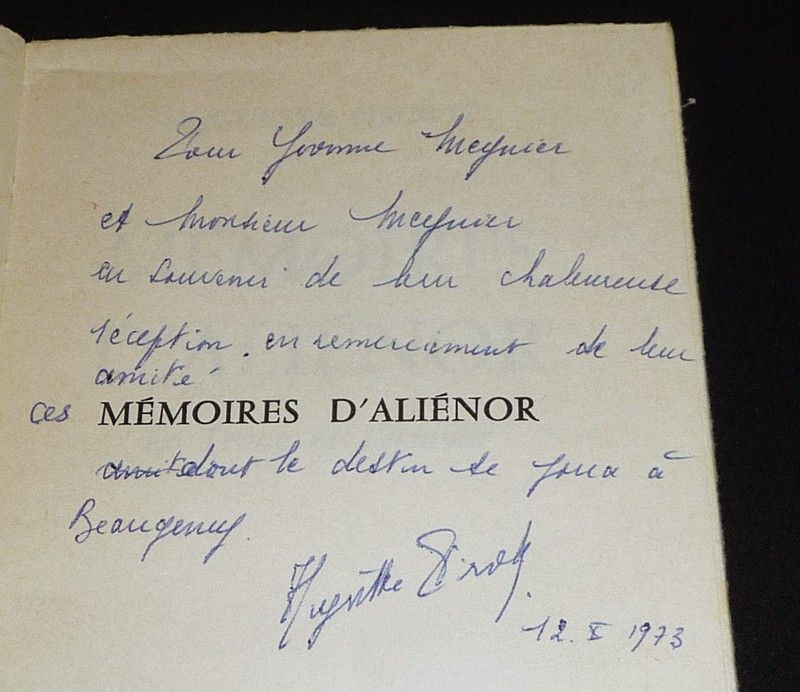 Pour Yvonne Meynier
et Monsieur Meynier
en souvenir de leur chaleureuse
réception, en remerciement de leur
amitié
ces MÉMOIRES D'ALIÉNOR
dont le destin se joua à
Beaugency.
Huguette Pirotte
12. X 1973